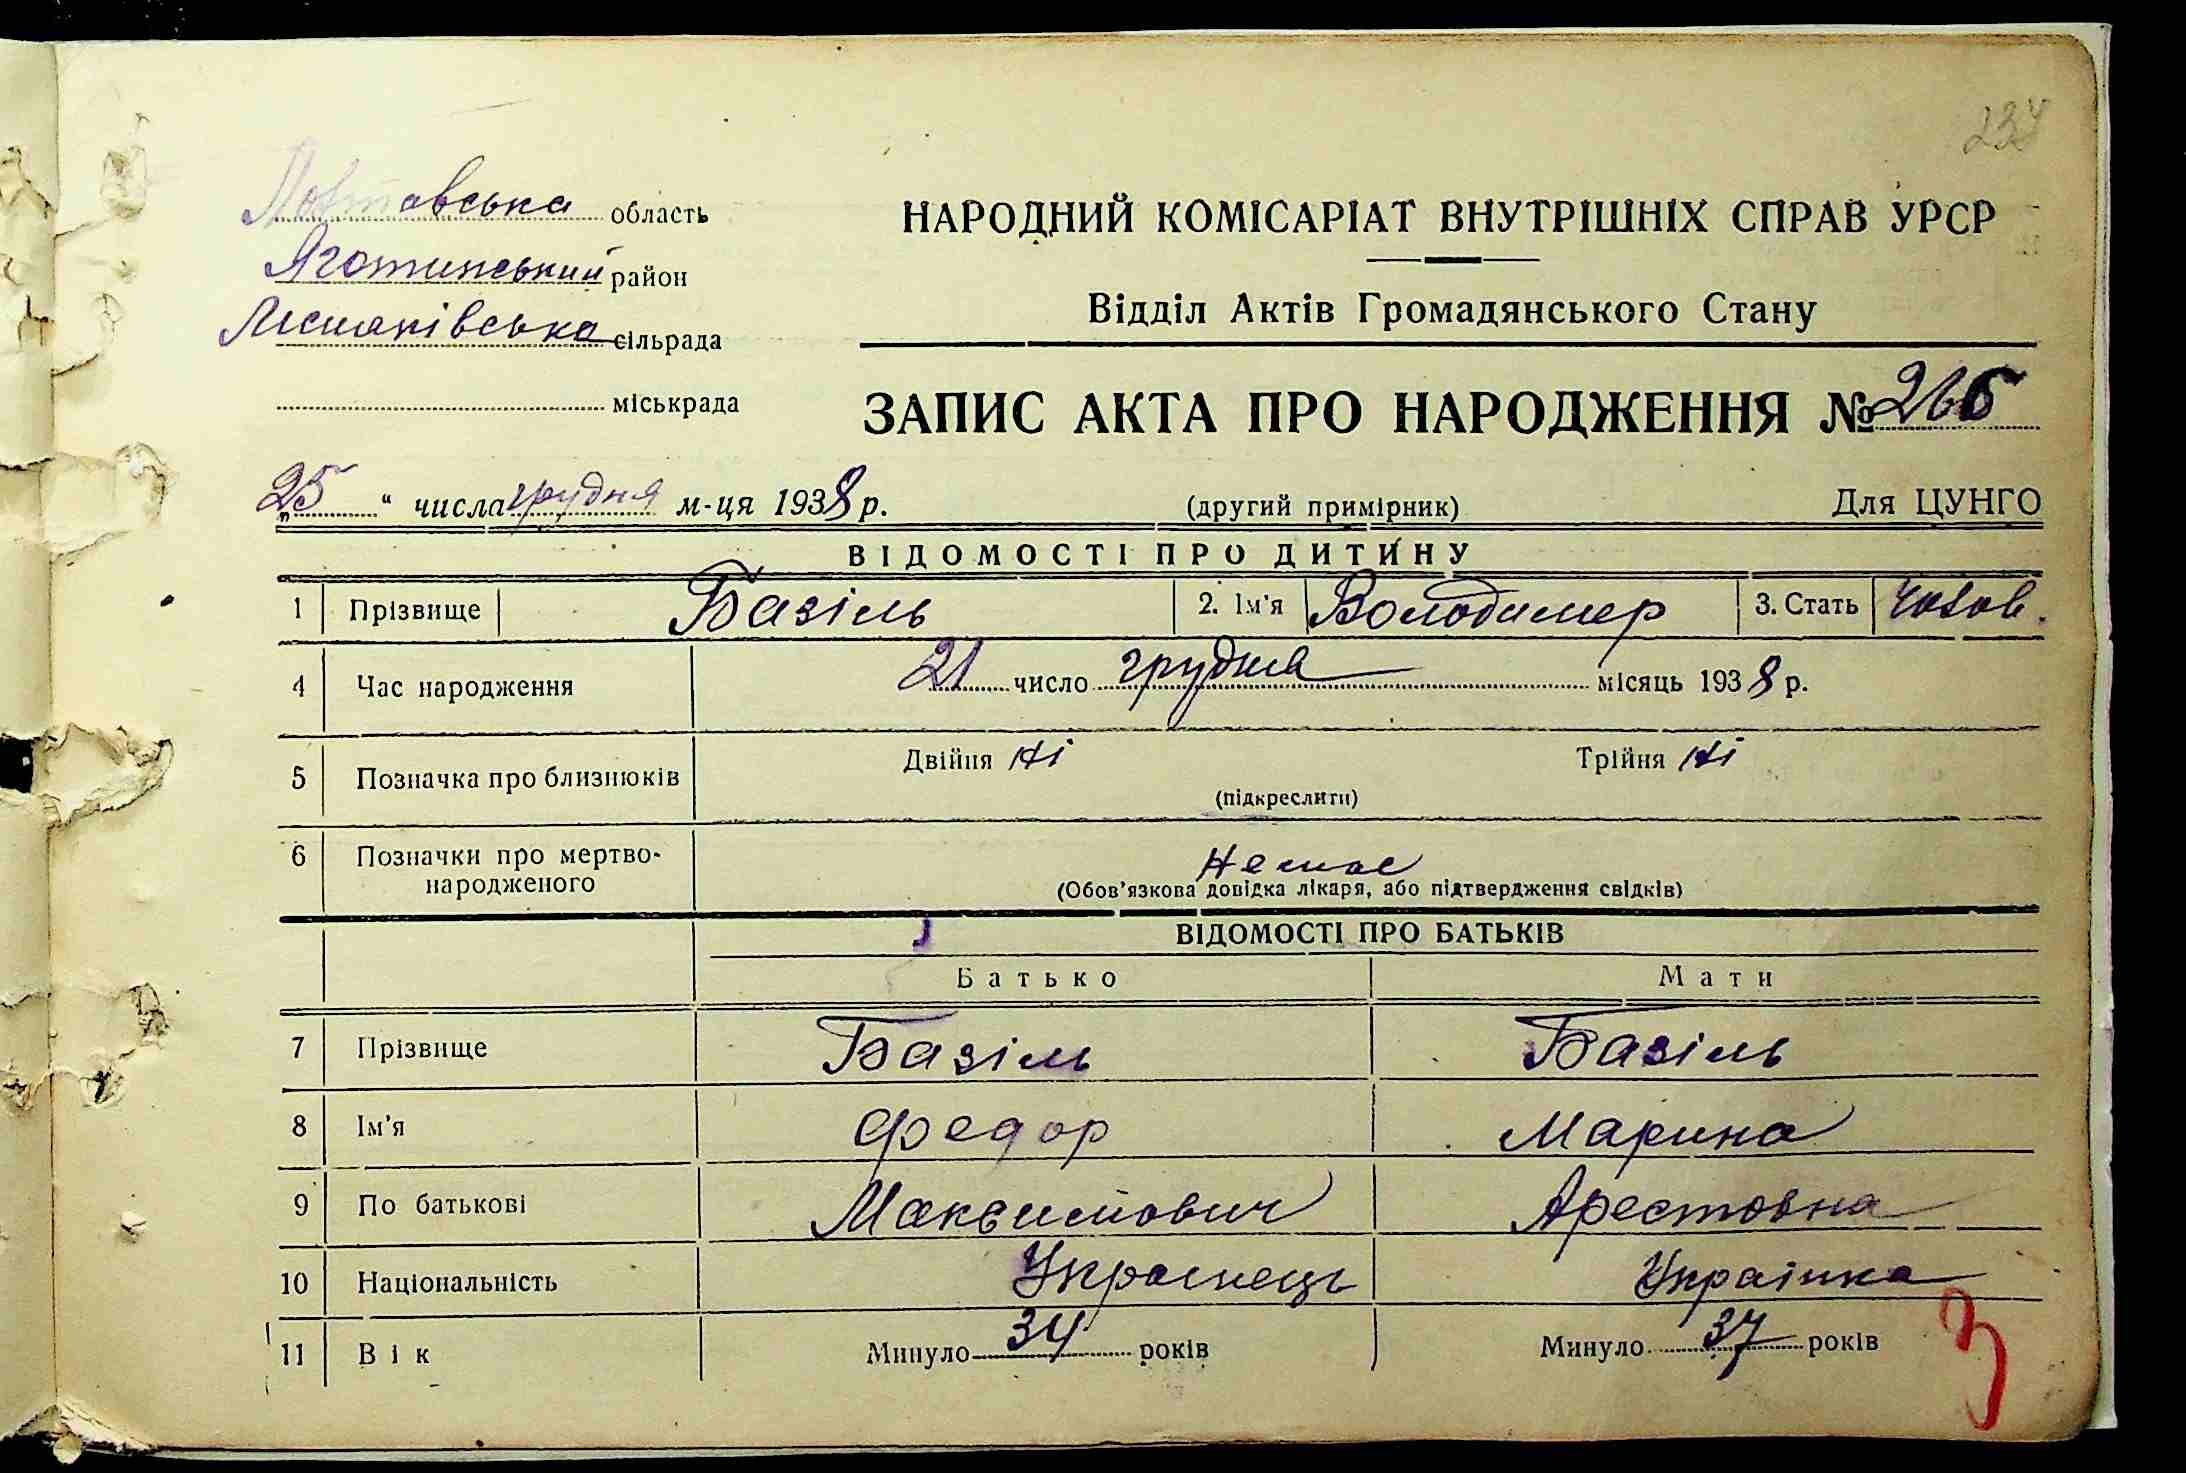 234
Полтавська область
Яготинський район
Лісняківська сільрада
міськрада
НАРОДНИЙ КОМІСАРІАТ ВНУТРІШНІХ СПРАВ УРСР
Відділ Актів Громадянського Стану
ЗАПИС АКТА ПРО НАРОДЖЕННЯ № 266
„25“ числа грудня м-ця 1938 р. (другий примірник) Для ЦУНГО
ВІДОМОСТІ ПРО ДИТИНУ
1 Прізвище Базіль 2. Ім'я Володимер 3. Стать чолов.
4 Час народження 21 число грудня місяць 1938 р.
5 Позначка про близнюків Двійня ні Трійня ні
(підкреслити)
6 Позначки про мертво-народженого Немає
(Обов'язкова довідка лікаря, або підтвердження свідків)
ВІДОМОСТІ ПРО БАТЬКІВ
Батько Мати
7 Прізвище Базіль Базіль
8 Ім'я Федор Марина
9 По батькові Максимович Арестовна
10 Національність Українець Українка
11 Вік Минуло 34 років Минуло 37 років
3